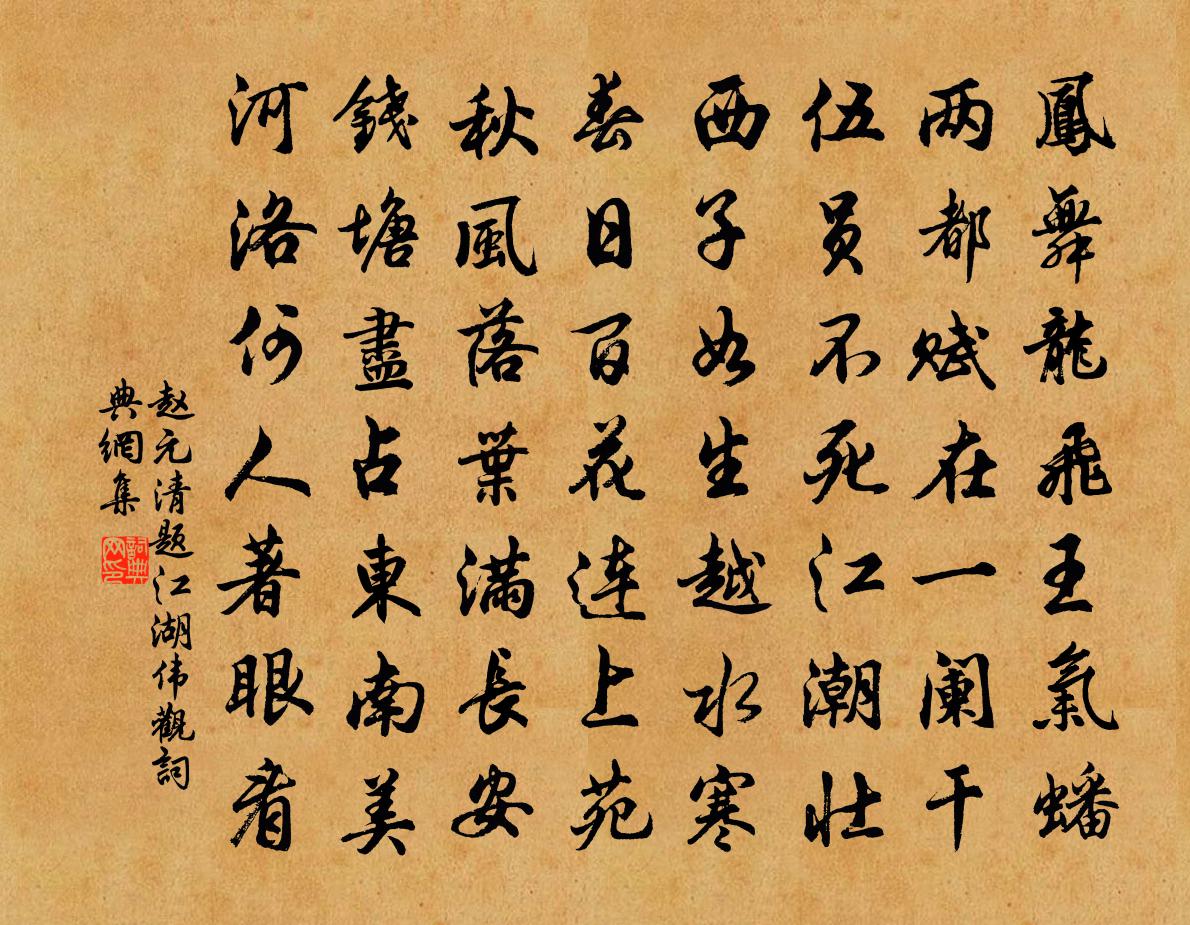 鳳舞龍飛王氣蟠
两都赋在一阑干
伍员不死江潮壮
西子如生越水寒
春日百花连上苑
秋風落葉满長安
錢塘盡占東南美
河洛何人著眼看
赵元清题江湖伟觀詞
典網集
詞典
网印